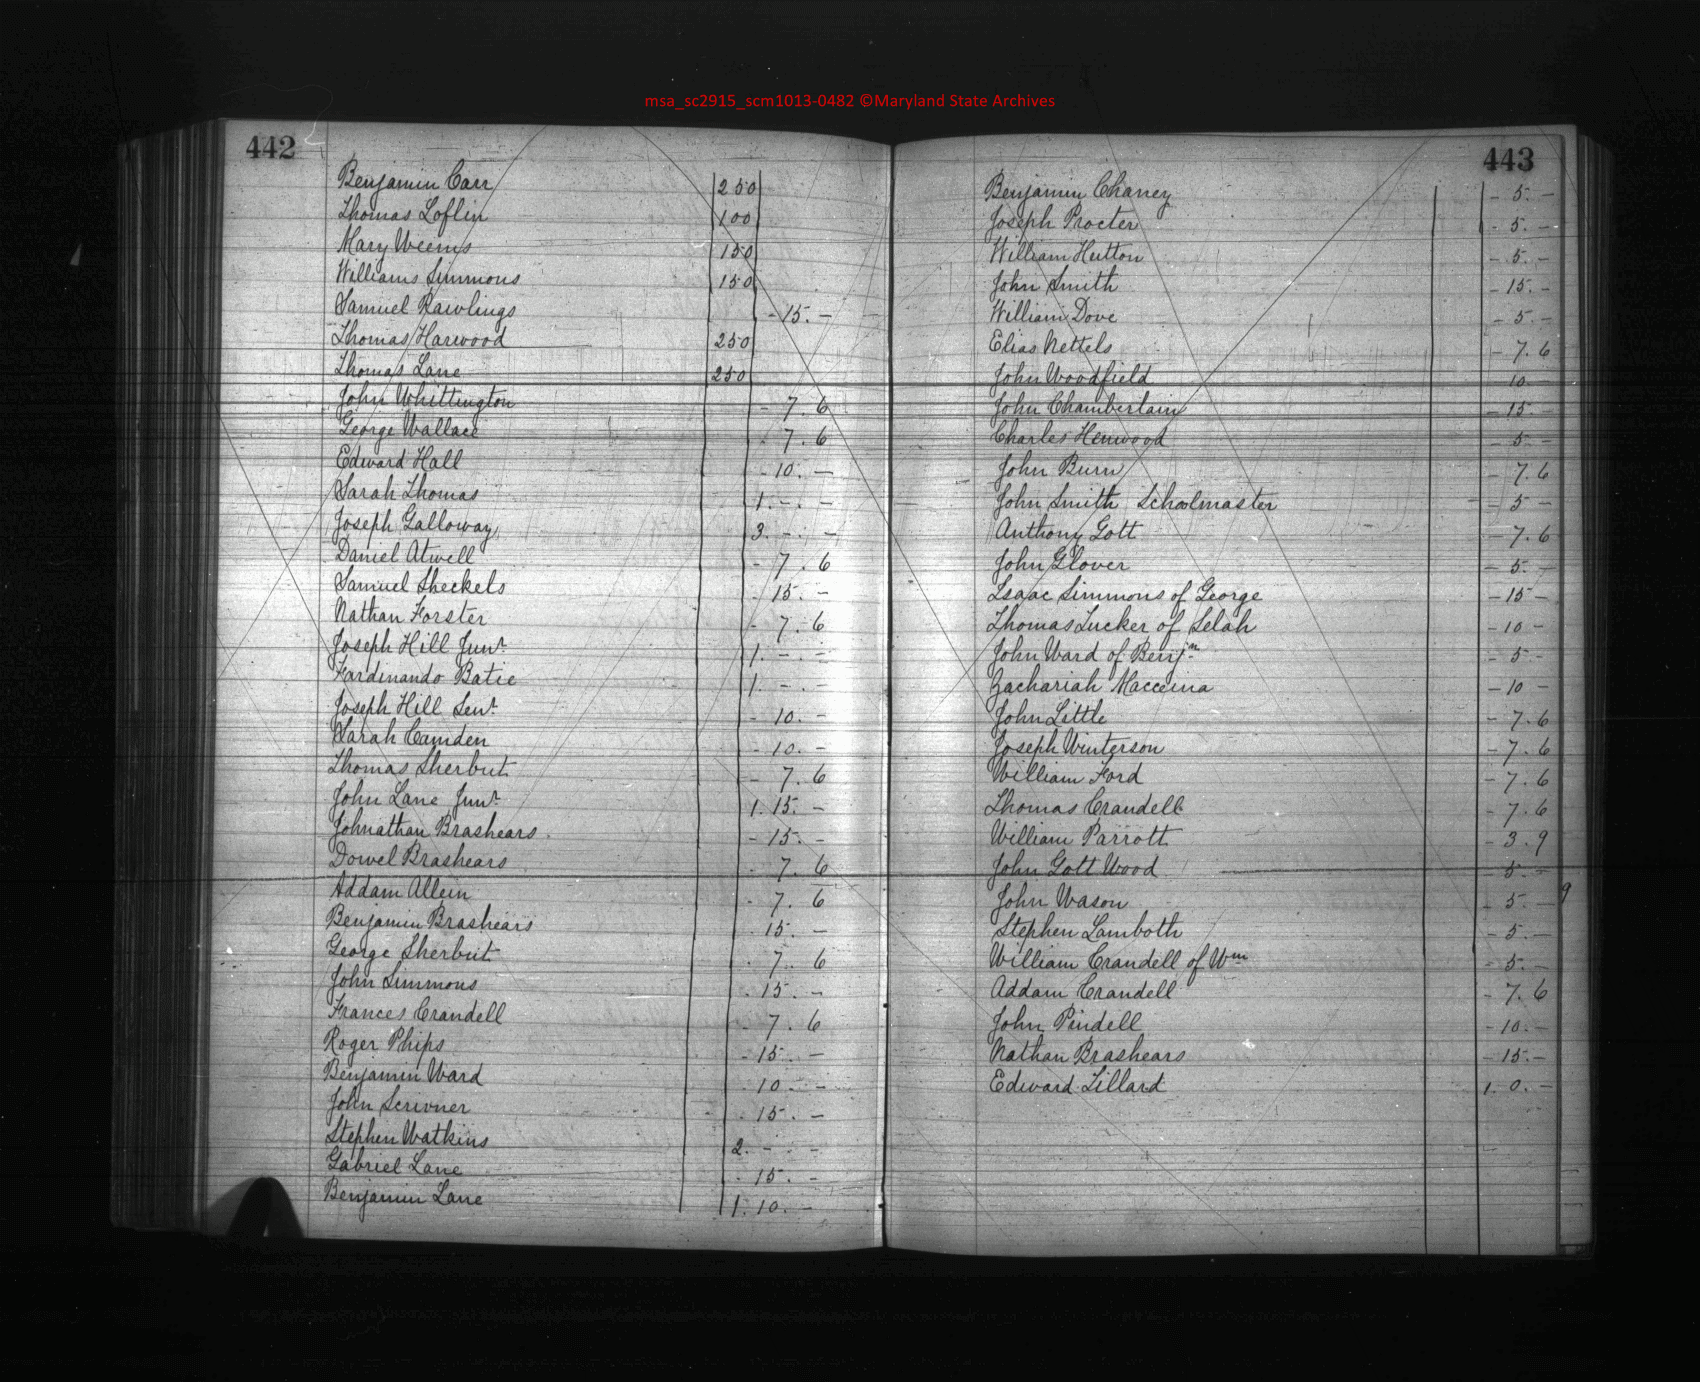 msa_sc2915_scm1013-0482 ©Maryland State Archives
442
Benjamin Carr 250
Thomas Loflin 100
Mary Weems 150
Williams Simmons 150
Samuel Rawlings - 15. -
Thomas Harwood 250
Thomas Lane 250
John Whittington - 7. 6
George Wallace - 7. 6
Edward Hall - 10. -
Sarah Thomas 1. - . -
Joseph Galloway 3. - . -
Daniel Atwell - 7. 6
Samuel Sheckels - 15. -
Nathan Forster - 7. 6
Joseph Hill Junr. 1. - . -
Fardinando Batie 1. - .
Joseph Hill Senr. - 10. -
Sarah Camden - 10. -
Thomas Sherbut - 7. 6
John Lane Junr. 1. 15. -
Johnathan Brashears. - 15. -
Dowel Brashears - 7. 6
Addam Allein - 7. 6
Benjamin Brashears . 15. -
George Sherbut . 7. 6
John Simmons . 15. -
Frances Crandell - 7. 6
Roger Phips - 15. -
Benjamin Ward . 10. -
John Scrivner . 15. -
Stephen Watkins 2. - . -
Gabriel Lane . 15. -
Benjamin Lane 1. 10. -
443
Benjamin Chaney - 5. -
Joseph Procter - 5. -
William Hutton - 5. -
John Smith - 15. -
William Dove - 5. -
Elias Nettels - 7. 6
John Woodfield 10 -
John Chamberlain - 15. -
Charles Henwood - 5 -
John Burn - 7. 6
John Smith Schoolmaster - 5 -
Anthony Gott - 7. 6
John Glover - 5. -
Isaac Simmons of George - 15 -
Thomas Tucker of Selah - 10 -
John Ward of Benjn. - 5 -
Zachariah Macceina - 10 -
John Little - 7. 6
Joseph Winterson - 7. 6
William Ford - 7. 6
Thomas Crandell - 7. 6
William Parrott - 3. 9
John Gott Wood - 5. -
John Wason - 5. -
Stephen Lamboth - 5. -
William Crandell of Wm - 5. -
Addam Crandell - 7. 6
John Pindell - 10. -
Nathan Brashears - 15. -
Edward Tillard 1. 0. -